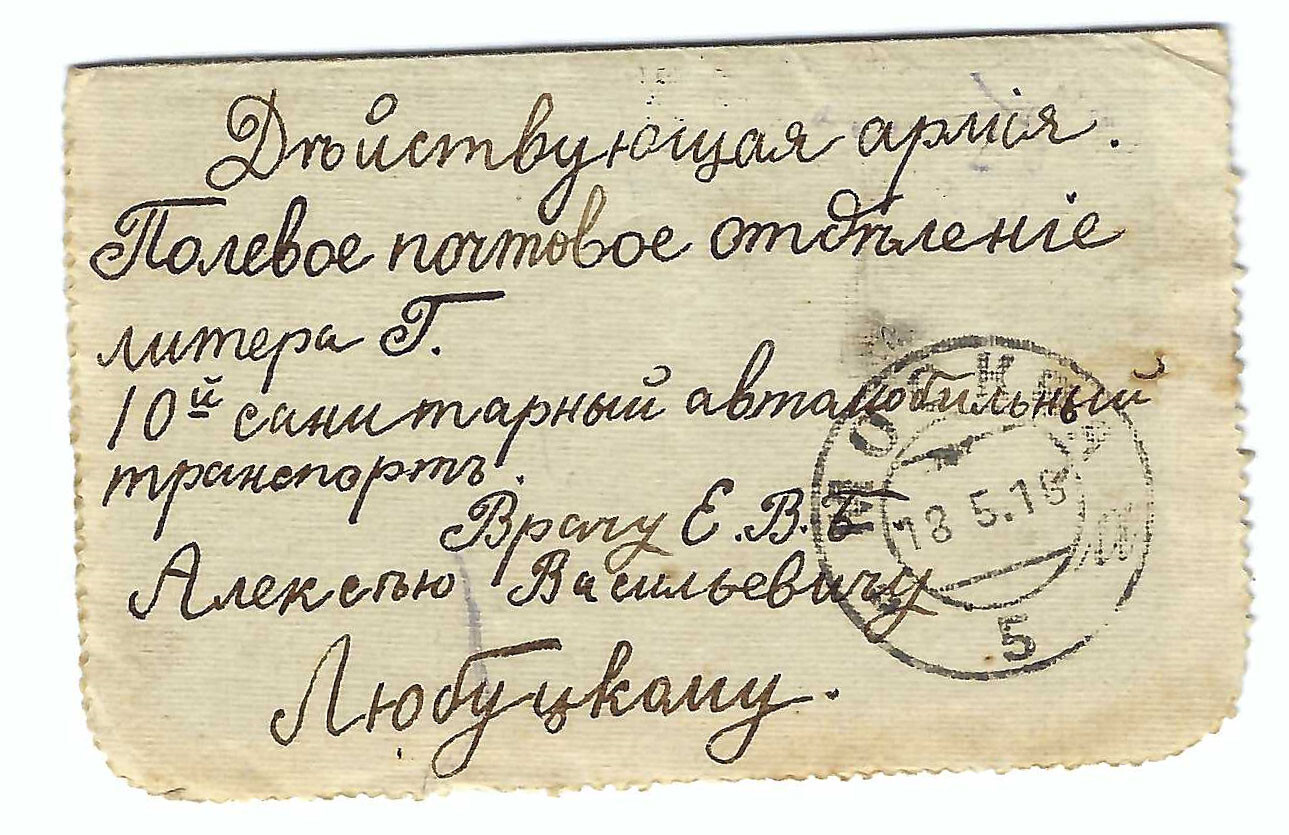 Дѣйствующая армія.
Полевое почтовое отдѣленіе
литера Г.
10й санитарный автомобильный
транспортъ.
Врачу Е. В. Б
Алексѣю Васильевичу
Любуцкому.
МОСКВА
18.5.16
5